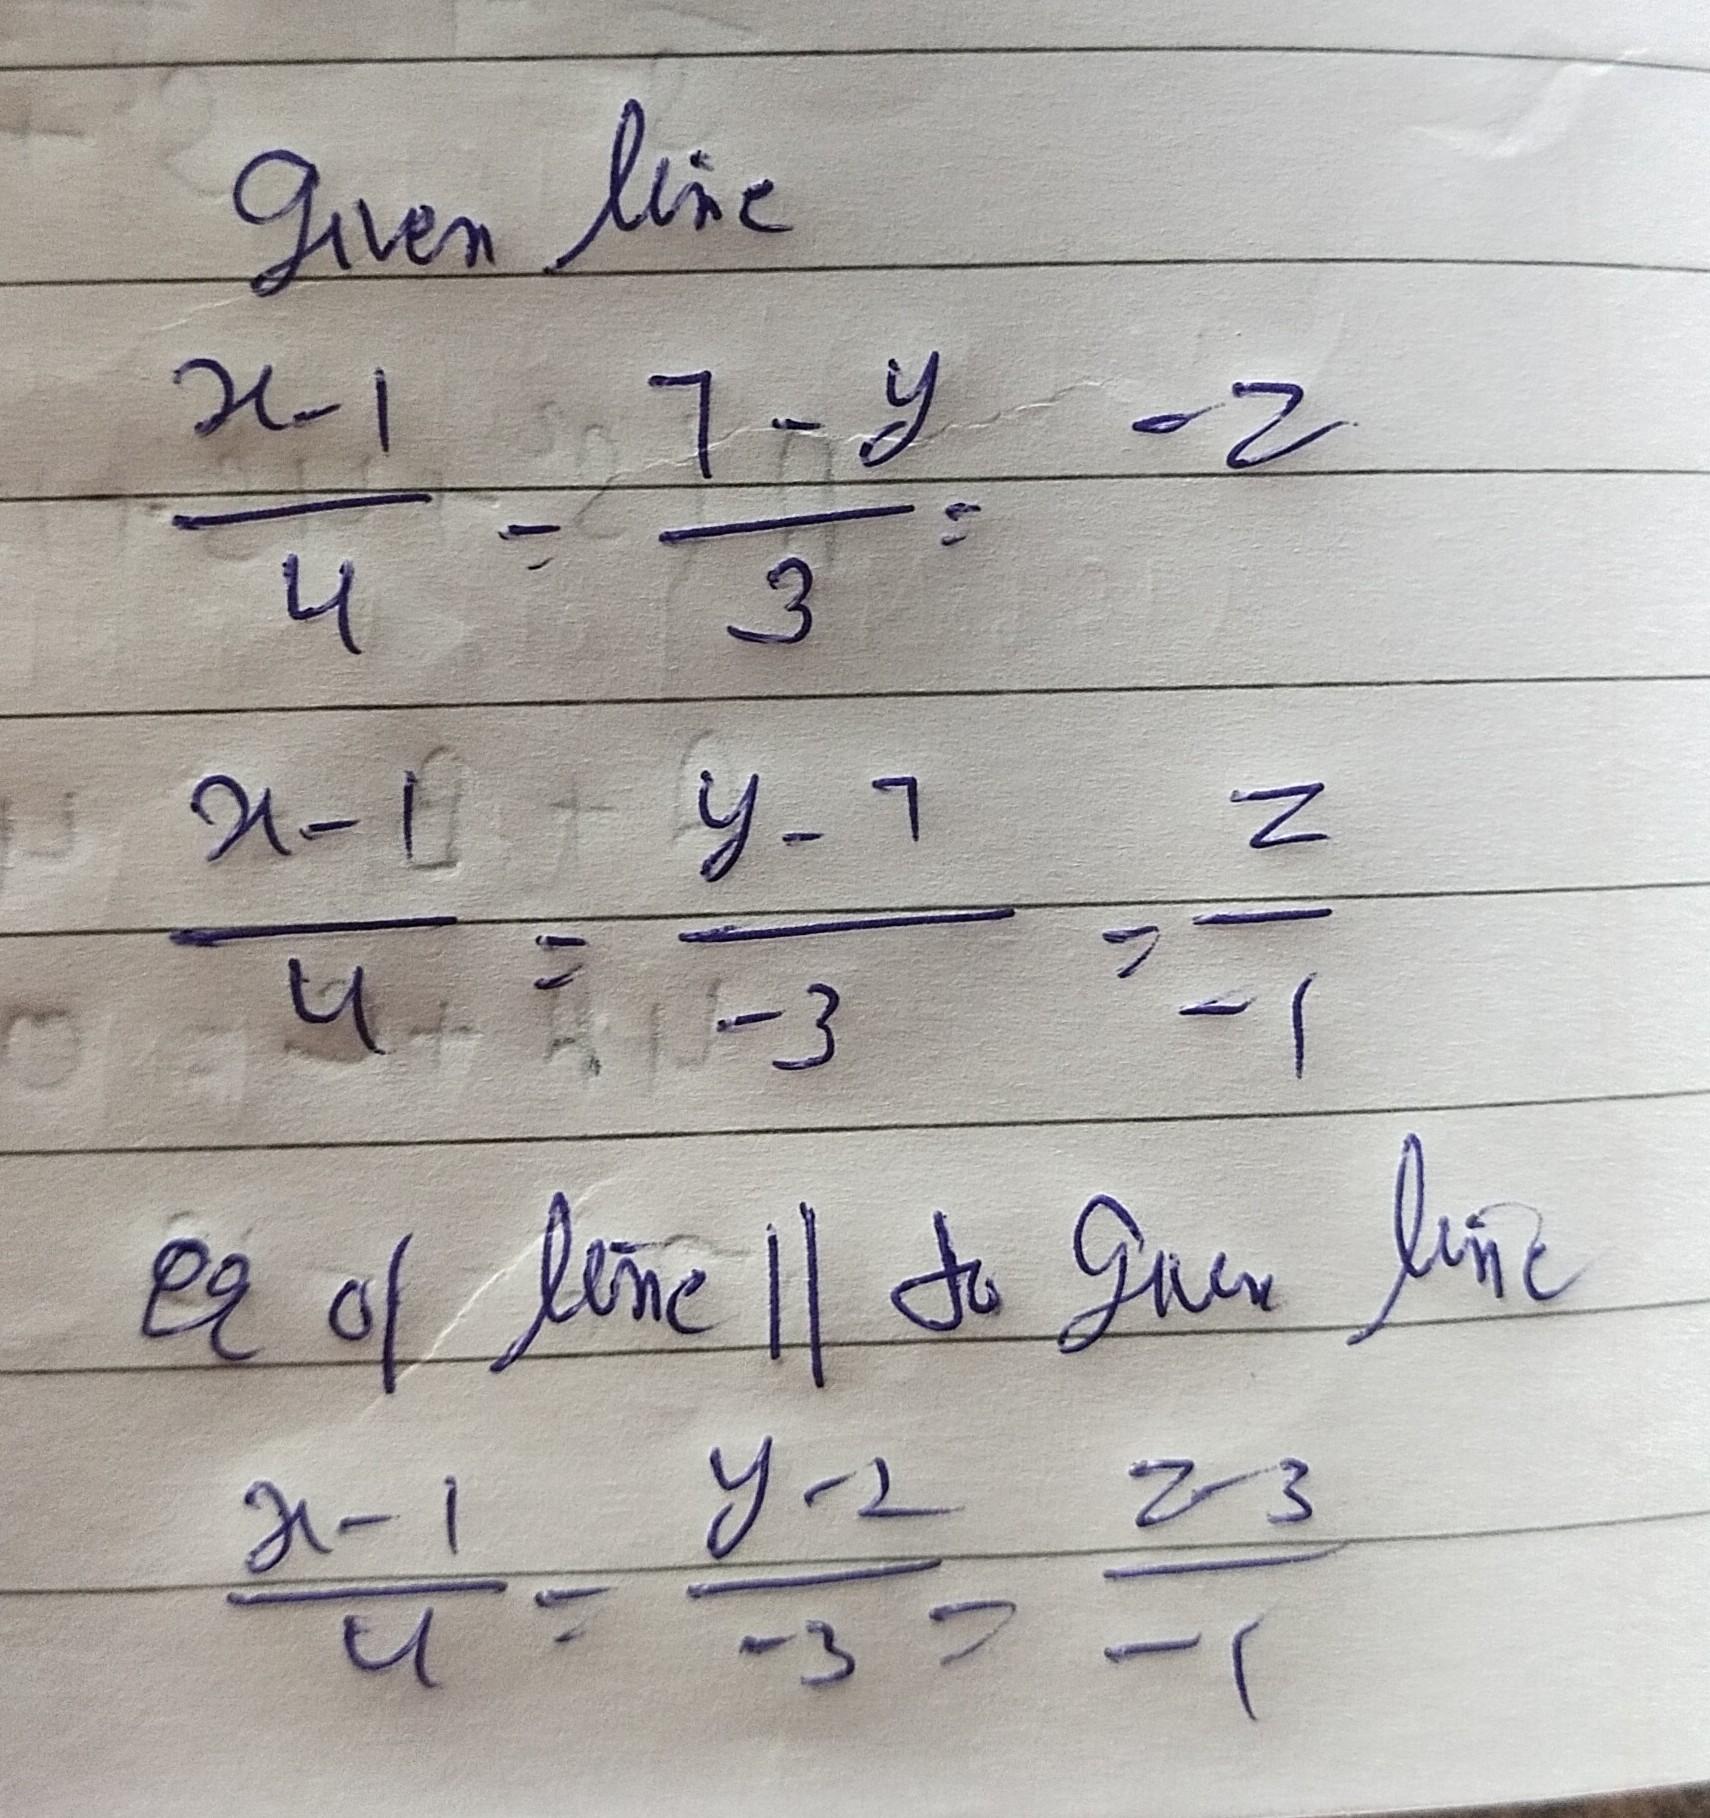 Given line
x-1/4 = 7-y/3 = -z
x-1/4 = y-7/-3 = z/-1
eq of line || to Given line
x-1/4 = y-2/-3 = z-3/-1